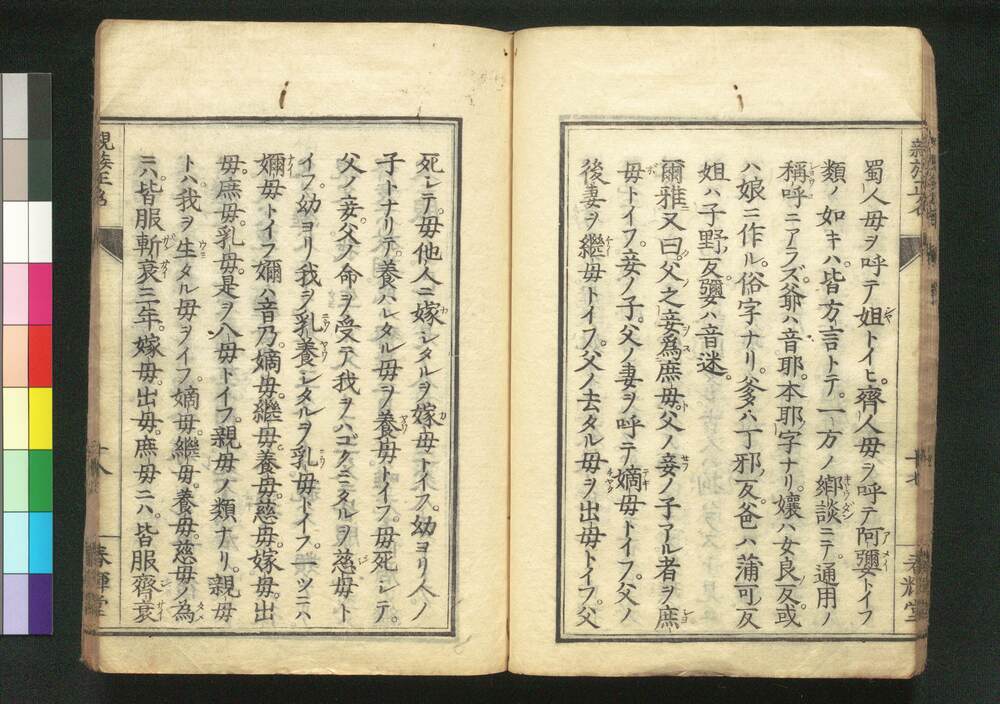 蜀人母ヲ呼テ姐トイヒ。齊人母ヲ呼テ阿㜷トイフ
類ノ如キハ。皆方言トテ。一方ノ鄕談ニテ通用ノ
稱呼ニアラズ。爺ハ音耶。本耶字ナリ。孃ハ女良反。或
ハ娘ニ作ル。俗字ナリ。爹ハ丁邪反。爸ハ蒲可反
姐ハ子野反。㜷ハ音迷。
爾雅又曰。父之妾爲庶母。父ノ妾ノ子アル者ヲ庶
母トイフ。妾ノ子。父ノ妻ヲ呼テ嫡母トイフ。父ノ
後妻ヲ繼母トイフ。父ノ去タル母ヲ出母トイフ。父
十七
春輝堂
死シテ。母他人ニ嫁シタルヲ嫁母トイフ。幼ヨリ人ノ
子トナリテ。養ハレタル母ヲ養母トイフ。母死シテ。
父ノ妾。父ノ命ヲ受テ我ヲハゴクミタルヲ慈母ト
イフ。幼ヨリ我ヲ乳養シタルヲ乳母トイフ。一ツニハ
嬭母トイフ。嬭ハ音乃。嫡母。繼母。養母。慈母。嫁母。出
母。庶母。乳母。是ヲ八母トイフ。親母ノ類ナリ。親母
トハ。我ヲ生タル母ヲイフ。嫡母。繼母。養母。慈母ノ爲
ニハ。皆服斬衰三年。嫁母。出母。庶母ニハ。皆服齊衰
親族正名
十八
春輝堂